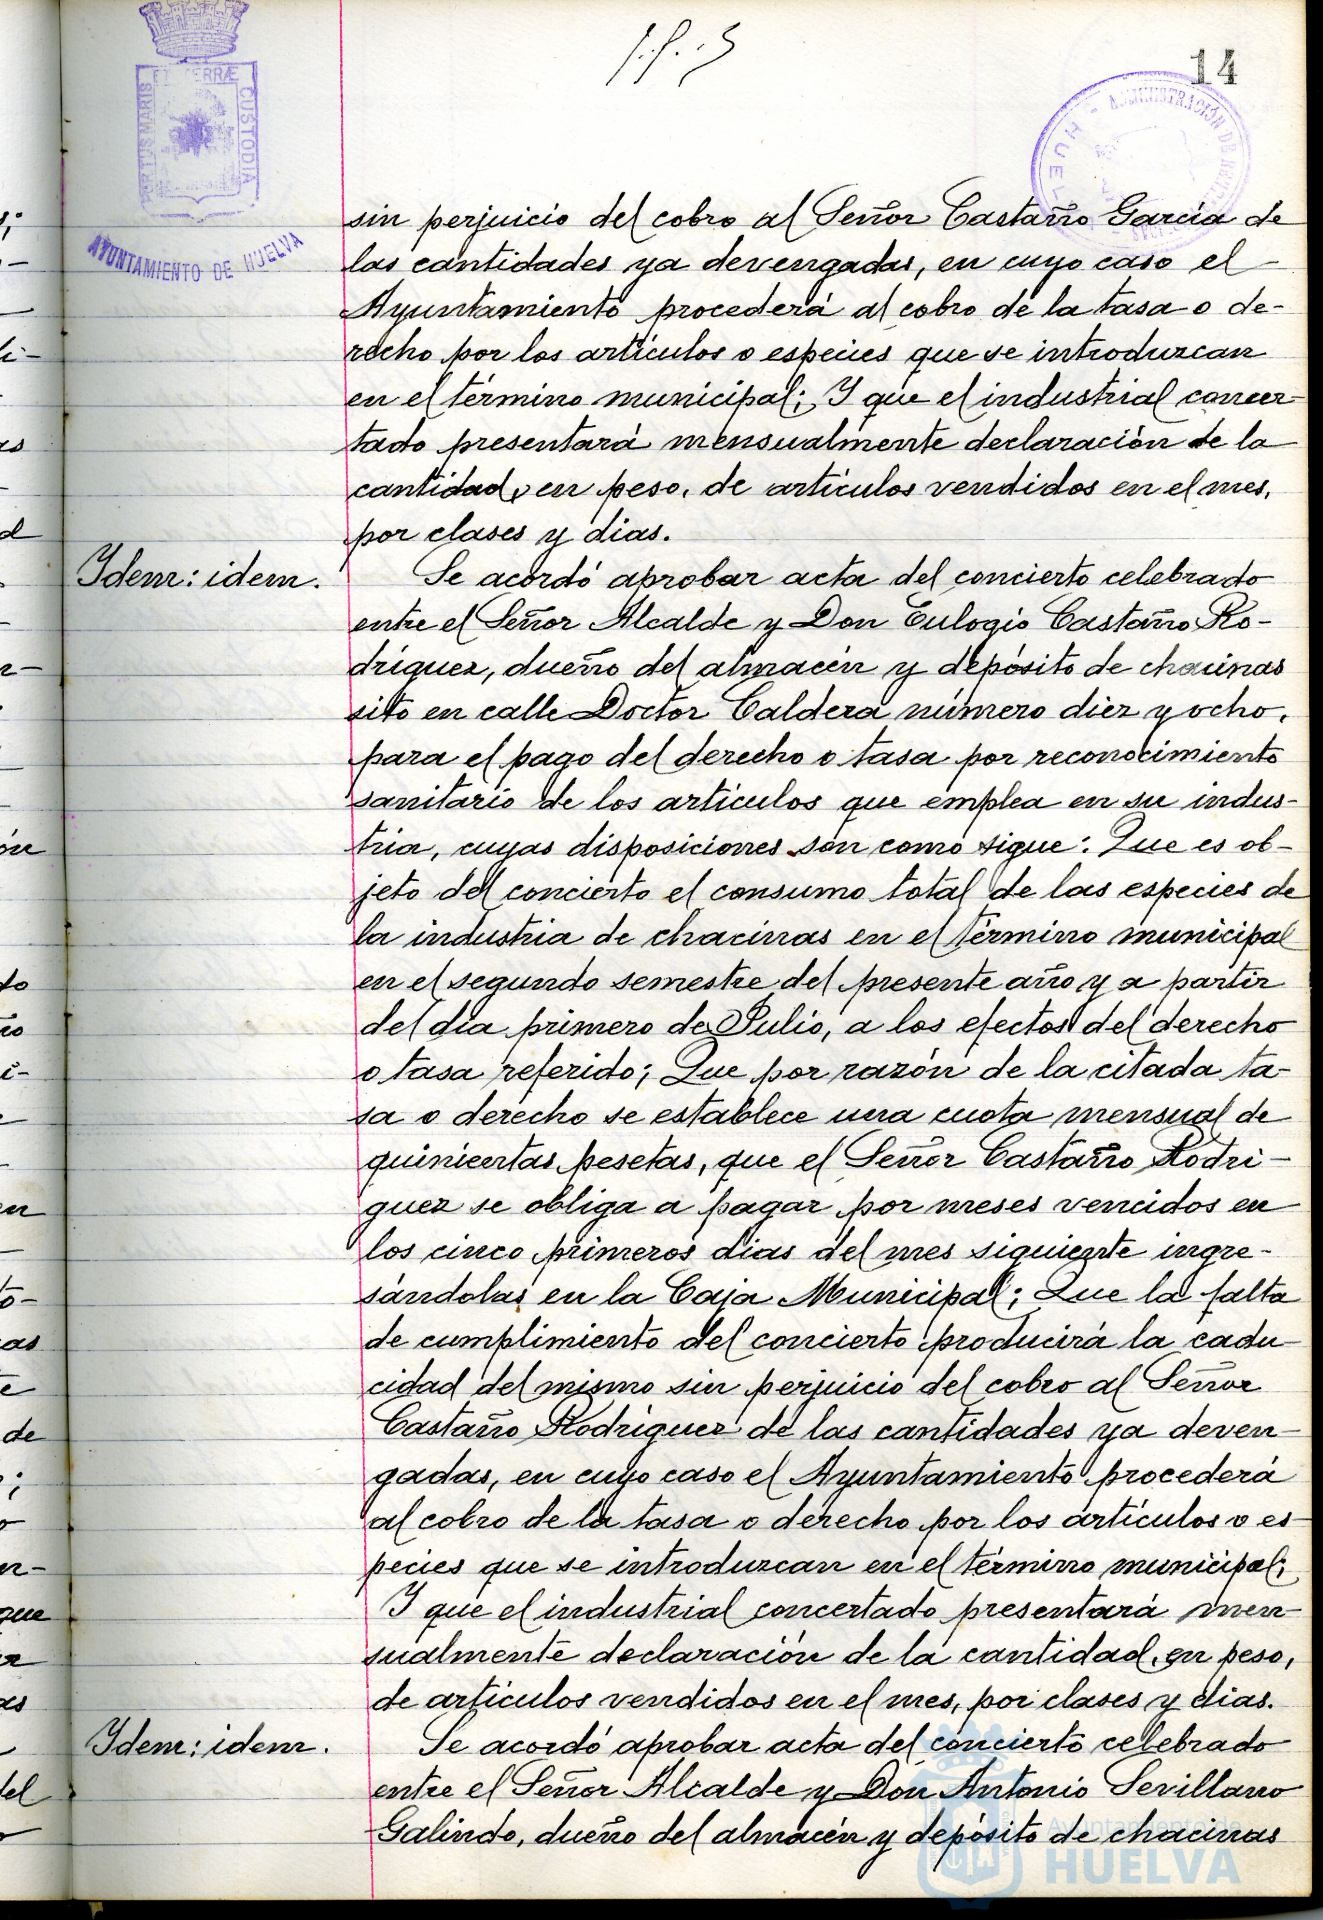 14
PORTUS MARIS ET TERRÆ CUSTODIA
AYUNTAMIENTO DE HUELVA
sin perjuicio del cobro al Señor Castaño García de
las cantidades ya devengadas, en cuyo caso el
Ayuntamiento procederá al cobro de la tasa o de-
recho por los artículos o especies que se introduzcan
en el término municipal; Y que el industrial concer-
tado presentará mensualmente declaración de la
cantidad, en peso, de artículos vendidos en el mes,
por clases y dias.
Idem: idem.
Se acordó aprobar acta del concierto celebrado
entre el Señor Alcalde y Don Eulogio Castaño Ro-
dríguez, dueño del almacén y depósito de chacinas
sito en calle Doctor Caldera número diez y ocho,
para el pago del derecho o tasa por reconocimiento
sanitario de los artículos que emplea en su indus-
tria, cuyas disposiciones son como sigue: Que es ob-
jeto del concierto el consumo total de las especies de
la industria de chacinas en el término municipal
en el segundo semestre del presente año y a partir
del día primero de Julio, a los efectos del derecho
o tasa referido; Que por razón de la citada ta-
sa o derecho se establece una cuota mensual de
quinientas pesetas, que el Señor Castaño Rodrí-
guez se obliga a pagar por meses vencidos en
los cinco primeros dias del mes siguiente ingre-
sándolas en la Caja Municipal; Que la falta
de cumplimiento del concierto producirá la cadu-
cidad del mismo sin perjuicio del cobro al Señor
Castaño Rodríguez de las cantidades ya deven-
gadas, en cuyo caso el Ayuntamiento procederá
al cobro de la tasa o derecho por los artículos o es-
pecies que se introduzcan en el término municipal;
Y que el industrial concertado presentará men-
sualmente declaración de la cantidad, en peso,
de artículos vendidos en el mes, por clases y dias.
Idem: idem.
Se acordó aprobar acta del concierto celebrado
entre el Señor Alcalde y Don Antonio Sevillano
Galindo, dueño del almacén y depósito de chacinas
Ayuntamiento de
HUELVA